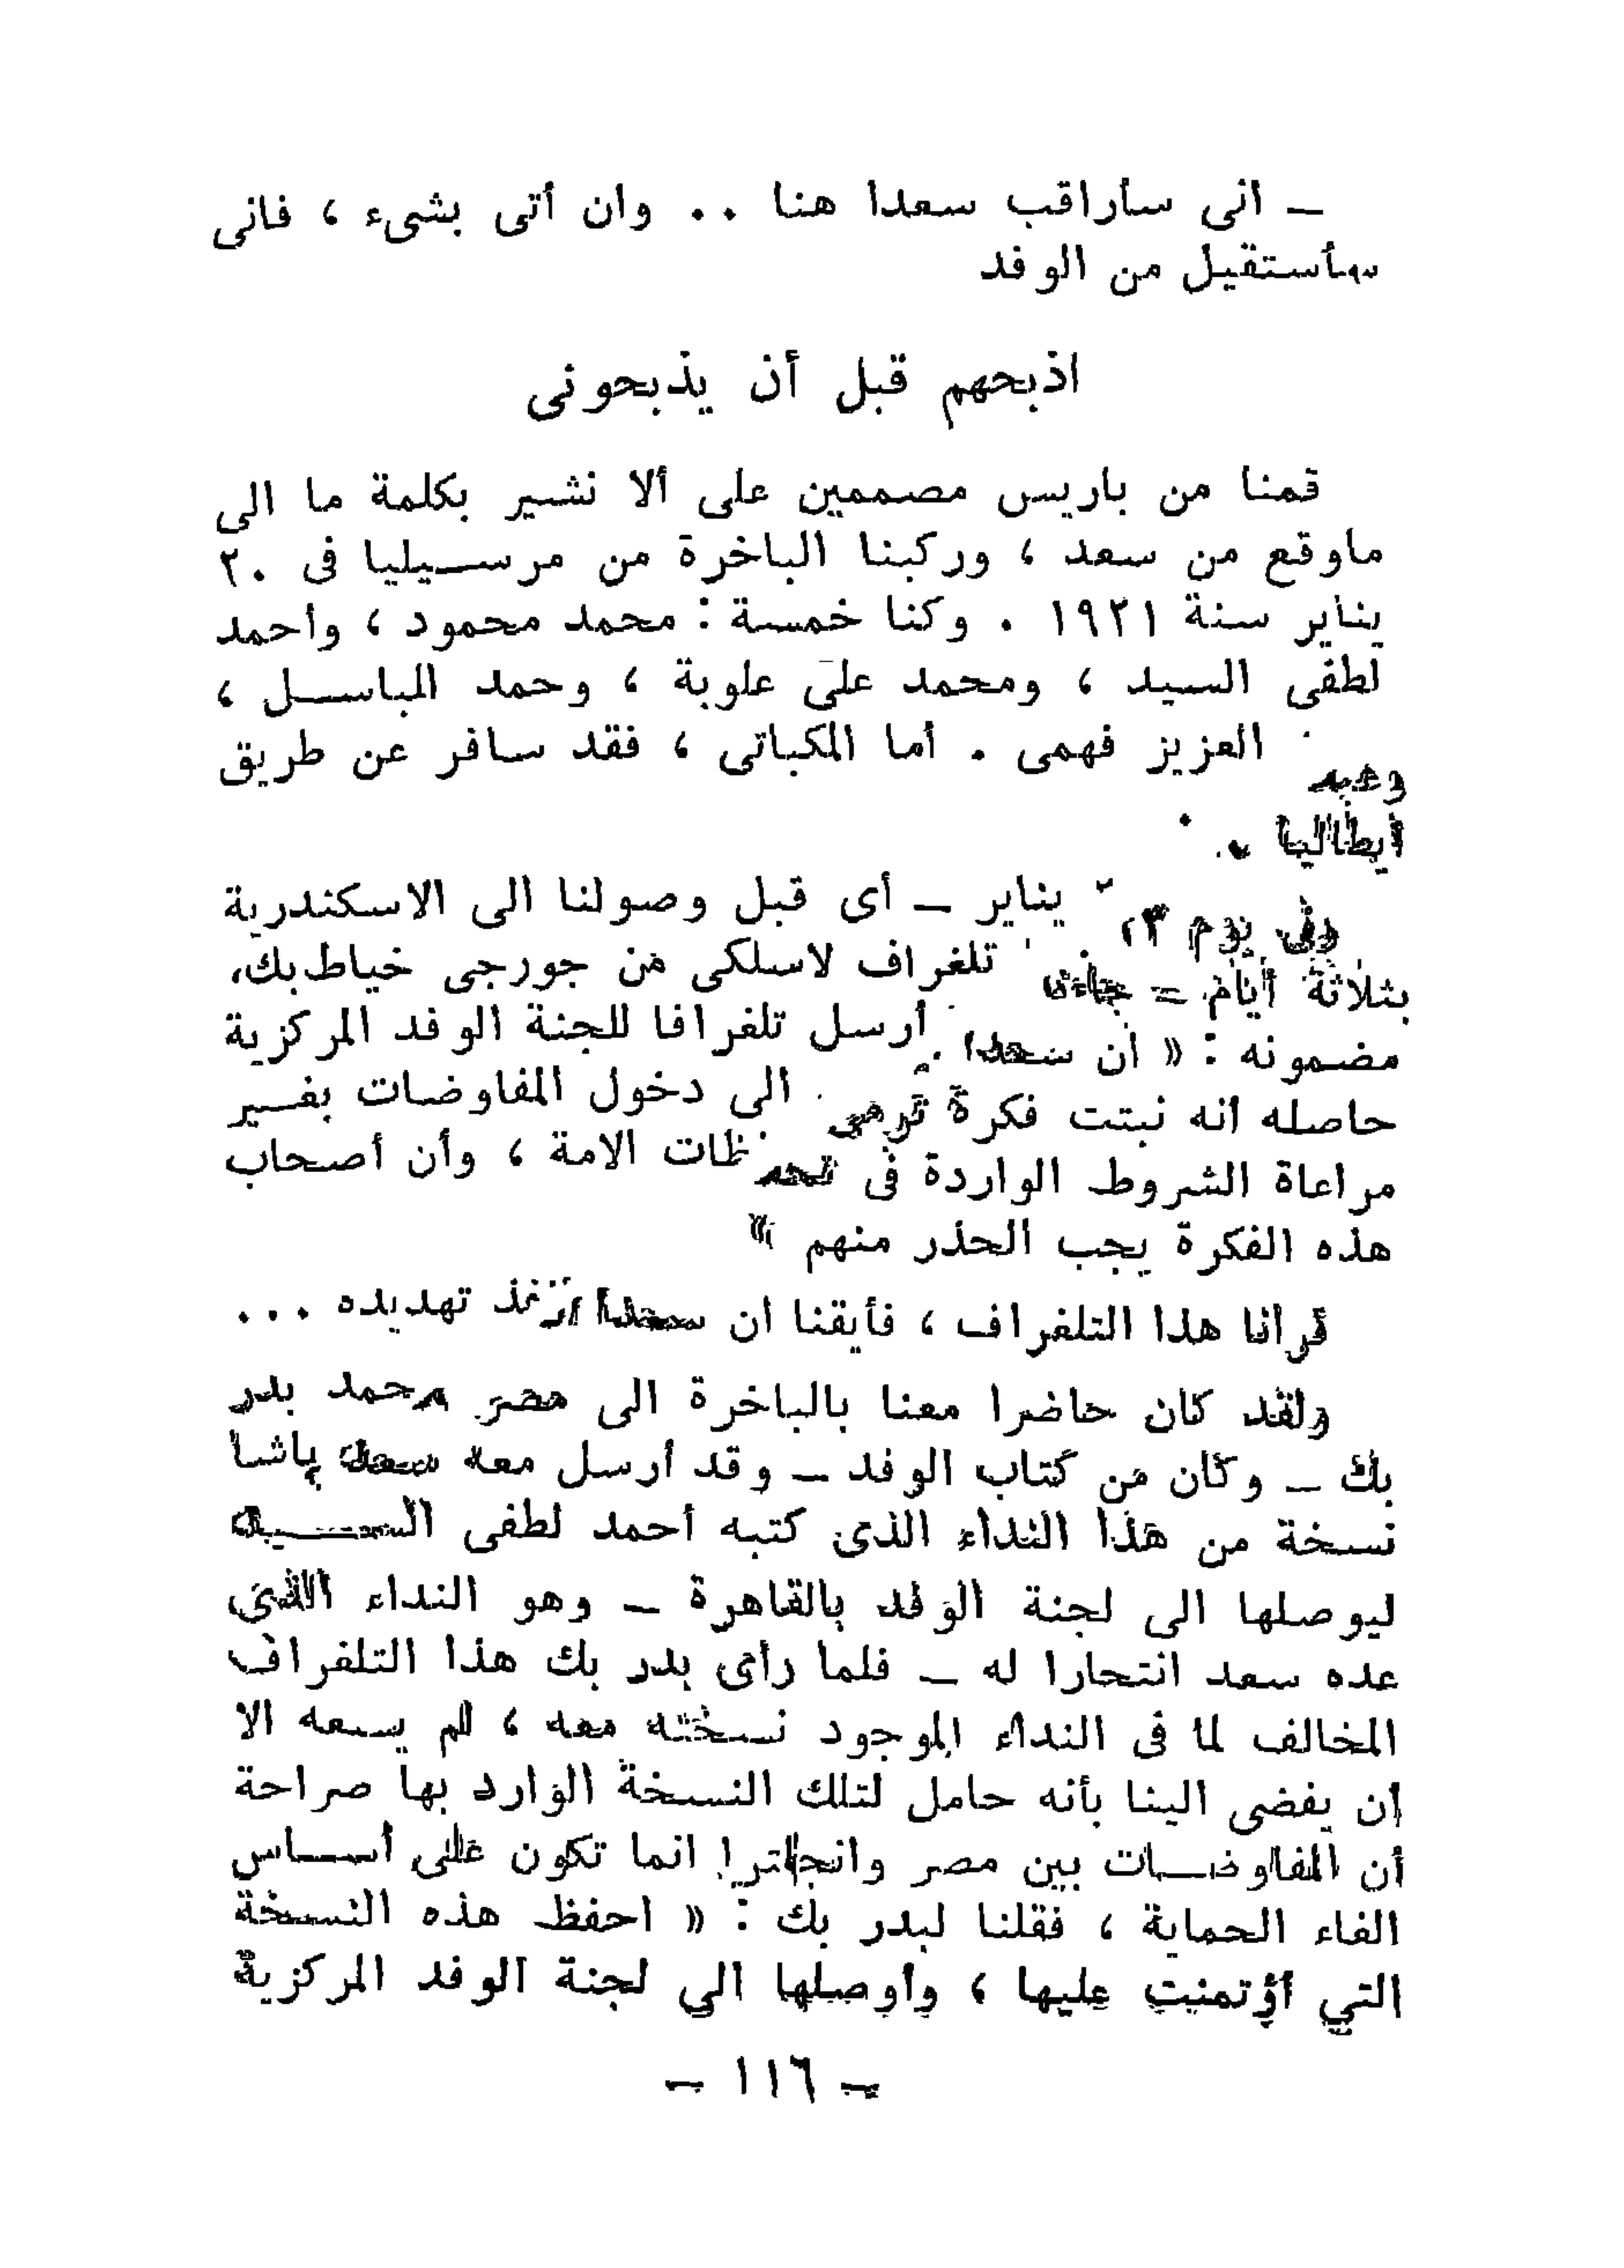 ـ انى سأراقب سعدا هنا .. وان أتى بشىء ، فانى
سأستقيل من الوفد
اذبحهم قبل أن يذبحونى
قمنا من باريس مصممين على ألا نشير بكلمة ما الى
ماوقع من سعد ، وركبنا الباخرة من مرسيليا فى ٢٠
يناير سنة ١٩٢١ . وكنا خمسة : محمد محمود ، وأحمد
لطفى السيد ، ومحمد على علوبة ، وحمد الباسل ،
وعبد العزيز فهمى . أما المكباتى ، فقد سافر عن طريق
ايطاليا .
وفى يوم يناير ـ أى قبل وصولنا الى الاسكندرية
بثلاثة أيام ـ جاءنا تلغراف لاسلكى من جورجى خياط بك،
مضمونه : « أن سعدا أرسل تلغرافا للجنة الوفد المركزية
حاصله أنه نبتت فكرة ترمى الى دخول المفاوضات بغير
مراعاة الشروط الواردة فى تحفظات الامة ، وأن أصحاب
هذه الفكرة يجب الحذر منهم »
قرأنا هذا التلغراف ، فأيقنا أن سعدا أنفذ تهديده ...
ولقد كان حاضرا معنا بالباخرة الى مصر محمد بدر
بك ـ وكان من كتاب الوفد ـ وقد أرسل معه سعد باشا
نسخة من هذا النداء الذى كتبه أحمد لطفى السيد
ليوصلها الى لجنة الوفد بالقاهرة ـ وهو النداء الذى
عده سعد انتحارا له ـ فلما رأى بدر بك هذا التلغراف
المخالف لما فى النداء الموجود نسخته معه ، لم يسعه الا
أن يفضى الينا بأنه حامل لتلك النسخة الوارد بها صراحة
أن المفاوضات بين مصر وانجلترا انما تكون على أساس
الغاء الحماية ، فقلنا لبدر بك : « احفظ هذه النسخة
التي أؤتمنت عليها ، وأوصلها الى لجنة الوفد المركزية
ـ ١١٦ ـ